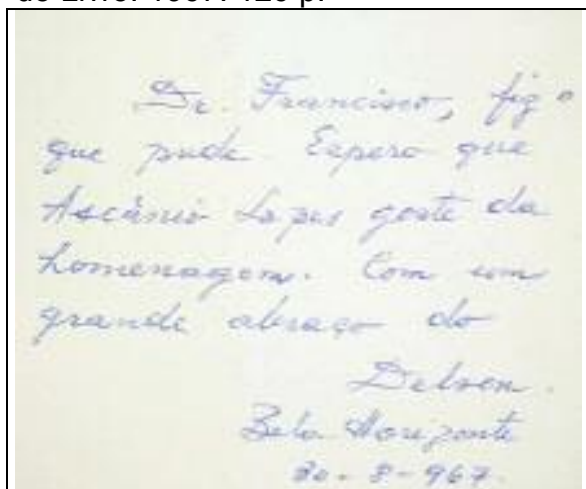 Dr. Francisco, fiz o
que pude. Espero que
Ascânio Lopes goste da
homenagem. Com um
grande abraço do
Delson.
Belo Horizonte
30-8-967.